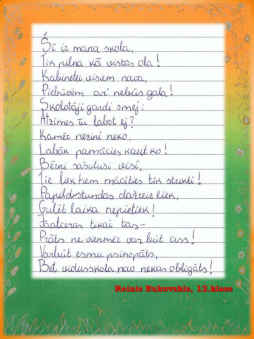 Šī ir mana skola,
Tik pilna kā vistas ola!
Kabinetu visiem nava,
Piebūvēm arī nebūs gala!
Skolotāji gardi smej:
Atzīmes tu labot ej?
Kamēr nezini neko,
Labāk pamācies kaut ko!
Bērni sašutuši visi,
Tie liek tiem mācīties tik strikti!
Papildstundas dažreiz liek,
Gulēt laika nepietiek!
Izatceras tikai tas-
Prāts ne vienmēr var būt ass!
Varbūt esmu psihopāts,
Bet vidusskola nav nekas obligāts!
Reinis Bukovskis, 12.klase